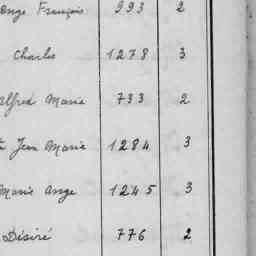 onze François 993 2
Charles 1278 3
Alfred Marie 733 2
Jean Marie 1284 3
Marie Ange 1245 3
Désiré 776 2